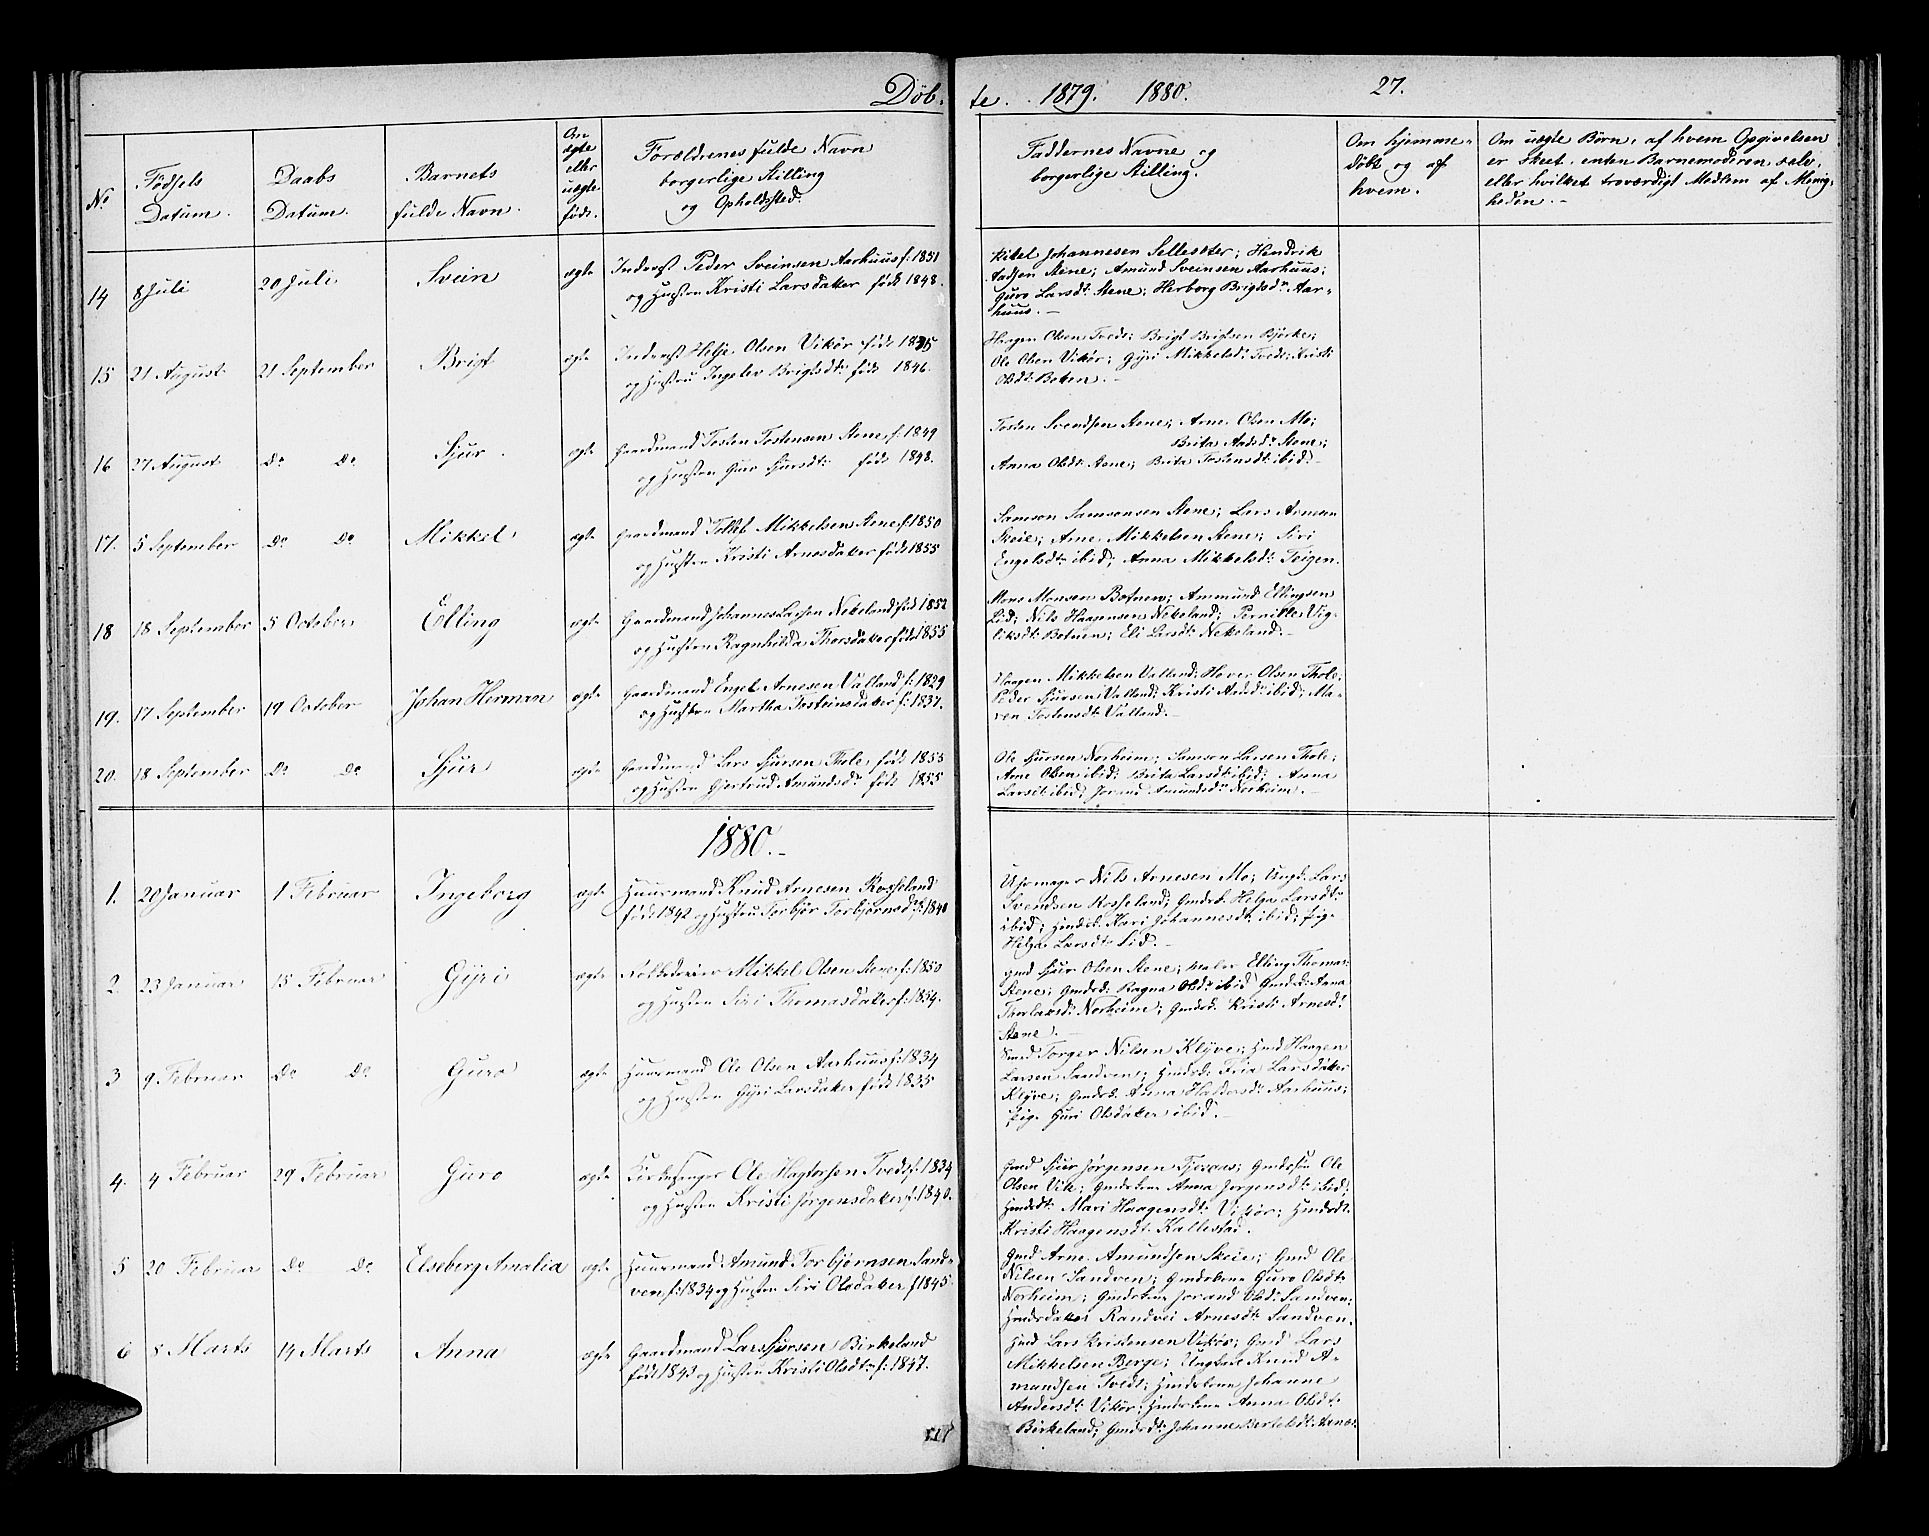 Døb-
te. 1879. 1880. 27.
No
Fødsels
Datum.
Daabs
Datum.
Barnets
fulde Navn.
Om
ægte
eller
uægte
født.
Forældrenes fulde Navn
borgerlige Stilling
og Opholdssted.
Faddernes Navne og
borgerlige Stilling.
Om hjemme-
døbt og af
hvem.
Om uægte Børn, af hvem Opgivelsen
er skeet, enten Barnemoderen selv,
eller hvilket troværdigt Medlem af Menig-
heden.
14 8 Juli 20 Juli Svein ægte Inderst Peder Sveinsen Aarhuus f: 1851
og Hustru Kristi Larsdatter født 1848.
Kikel Johannesen Sellesæter; Hendrik
Aadsen Stene; Amund Sveinsen Aarhuus;
Guro Larsdt. Stene; Herborg Brigtsdr. Aar-
huus.
15 21 August 21 September Brigt ægte Inderst Helje Olsen Vikør født 1845
og Hustru Ingelev Brigtsdt. født 1846.
Haagen Olsen Tvedt; Brigt Brigtsen Bjørke;
Ole Olsen Vikør; Gyri Mikkelsdt. Tvedt; Kristi
Olsdt. Boten.
16 27 August Do Do Sjur ægte Gaardmand Tosten Tostensen Stene f: 1849
og Hustru Guro Sjursdt. født 1848.
Tosten Svendsen Stene; Arne Olsen Mo;
Brita Aadsdr. Stene;
Anna Olsdt. Stene; Brita Tostensdt. ibid.
17. 5 September Do Do Mikkel ægte Gaardmand Tollef Mikkelsen Stene f: 1850
og Hustru Kristi Arnesdatter født 1855
Samson Samsonsen Stene; Lars Arnesen
Skeie; Arne Mikkelsen Stene; Siri
Engelsdt. ibid; Anna Mikkelsdt. Teigen.
18 18 September 5 October Elling ægte Gaardmand Johannes Larsen Nekeland født 1852
og Hustru Ragnhilda Thorsdatter født 1855
Mons Monsen Botnen; Ammund Ellingsen
Lid; Nils Haagensen Nekeland; Pernille Vig-
liksdt. Botnen; Eli Larsdt. Nekeland.
19. 17 September 19 October Johan Herman ægte Gaardmand Engel Arnesen Valland f: 1829
og Hustru Martha Tosteinsdatter f: 1837.
Haagen Mikkelsen Valland; Haver Olsen Thole;
Peder Sjursen Valland; Kristi Aadsdr. ibid; Ma-
ren Tostensdt. Valland.
20. 18 September Do Do Sjur ægte Gaardmand Lars Sjursen Thole født 1855
og Hustru Gjertrud Amundsdr. født 1855
Ole Sjursen Norheim; Samson Larsen Thole;
Arne Olsen ibid; Brita Larsdt. ibid; Anna
Larsdt. ibid; Jorand Amundsdr. Norheim.
1880.
1. 20 Januar 1 Februar Ingeborg ægte Huusmand Knud Arnesen Rosseland
født 1842 og Hustru Torbjør Torbjørnsdr. f: 1840
Uhrmager Nils Arnesen Mo; Ungk. Lars
Svendsen Rosseland; Gmdsd. Helga Larsdt.
ibid; Hmdsd. Kari Johannesdt. ibid; Pige
Helga Larsdt. Lid.
2. 23 Januar 15 Februar Gyri ægte Føderaadsmand Mikkel Olsen Stene f: 1850
og Hustru Siri Thomasdatter f: 1854.
Gmd Sjur Olsen Stene; Maler Elling Thomas.
Stene; Gmdsd. Ragna Olsdr. ibid Gmdsd. Anna
Thorlaksd. Norheim; Gmdsd. Kristi Arnesdt.
Stene.
3 9 Februar Do Do Guro ægte Huusmand Ole Olsen Aarhuus f: 1834
og Hustru Gyri Larsdatter født 1835
Gmd Torger Nilsen Klyve; Hmd Haagen
Larsen Sandven; Hmdsd. Fria Larsdatter
Klyve; Gmdsd. Anna Haldorsdr. Aarhuus;
Pige Guri Olsdatter ibid.
4. 4 Februar 29 Februar Guro ægte Kirkesanger Ole Hagtorsen Tvedt f: 1834
og Hustru Kristi Jørgensdatter f: 1840.
Gmd Sjur Jørgensen Fjeraas; Gmdssøn Ole
Olsen Vik; Gmdskone Anna Jørgensdt. ibid;
Hmdsdt. Mari Haagensdt. Vikør; Hmdsdt.
Kristi Haagensdt. Kallestad.
5 20 Februar Do Do Elseberg Amalia ægte Huusmand Amund Torbjørnsen Sand-
ven f: 1834 og Hustru Siri Olsdatter f 1845.
Gmd. Arne Amundsen Skeie; Gmd Ole
Nilsen Sandven; Gmdskone Guro Olsdt.
Norheim; Gmdskone Jorand Olsdt. Sandven;
Hmdsdatter Randvei Arnesdt. Sandven.
6 8 Marts 14 Marts Anna ægte Gaardmand Lars Sjursen Birkeland
født 1843 og Hustru Kristi Olsdt. f: 1847.
Hmd Lars Kristensen Vikør; Gmd Lars
Mikkelsen Berge; Ungkarl Knud A-
mundsen Tvedt; Hmdskone Johanne
Andersdt. Vikør; Hmdskone Anna Olsdt.
Birkeland; Gmdsdt. Johanne Bertelsdt. Aarnes.